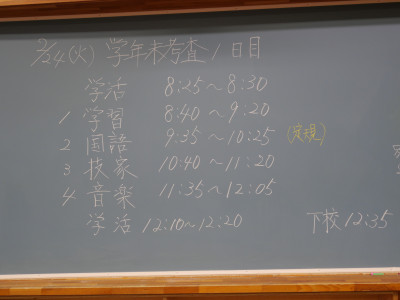 2/24(火) 学年末考査1日目
学活 8:25～8:30
1 学習 8:40～9:20
2 国語 9:35～10:25
3 技家 10:40～11:20
4 音楽 11:35～12:05
学活 12:10～12:20
下校 12:35